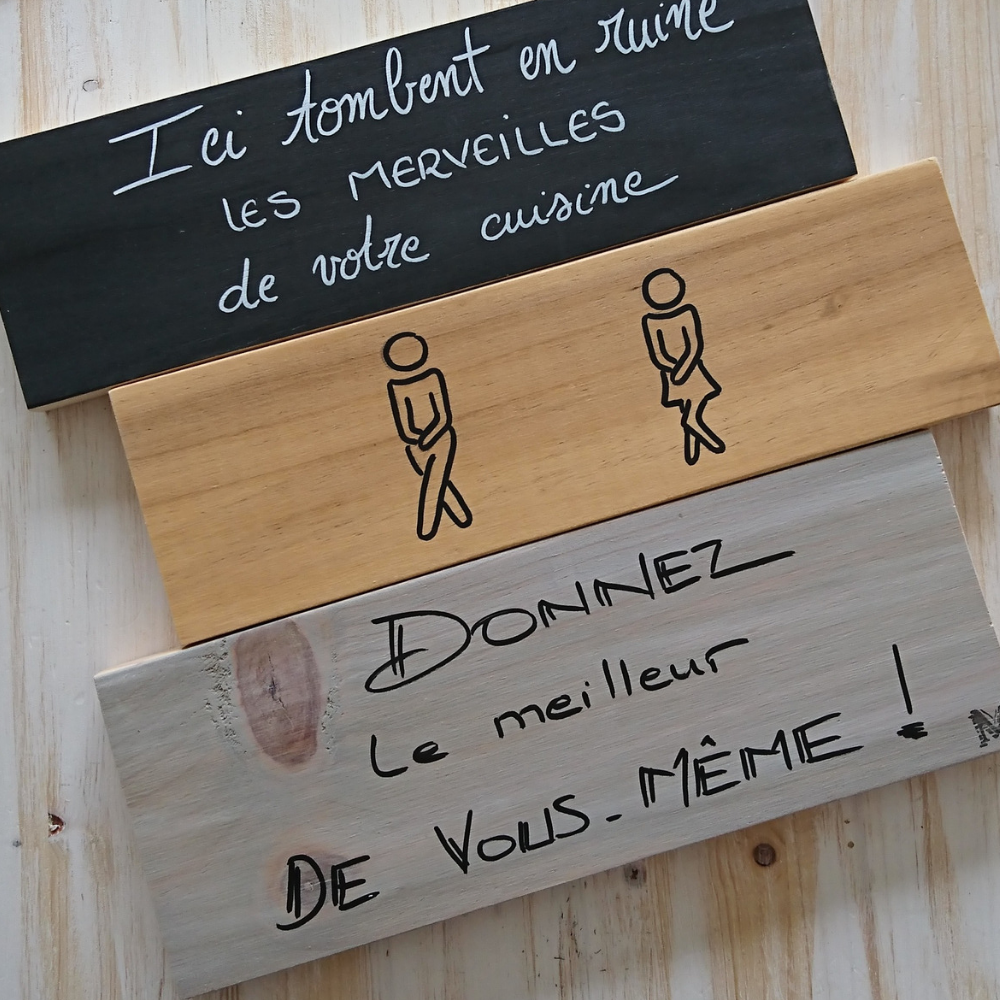 Ici tombent en ruine
LES MERVEILLES
de votre cuisine
DONNEZ
Le meilleur
DE VOUS-MÊME !